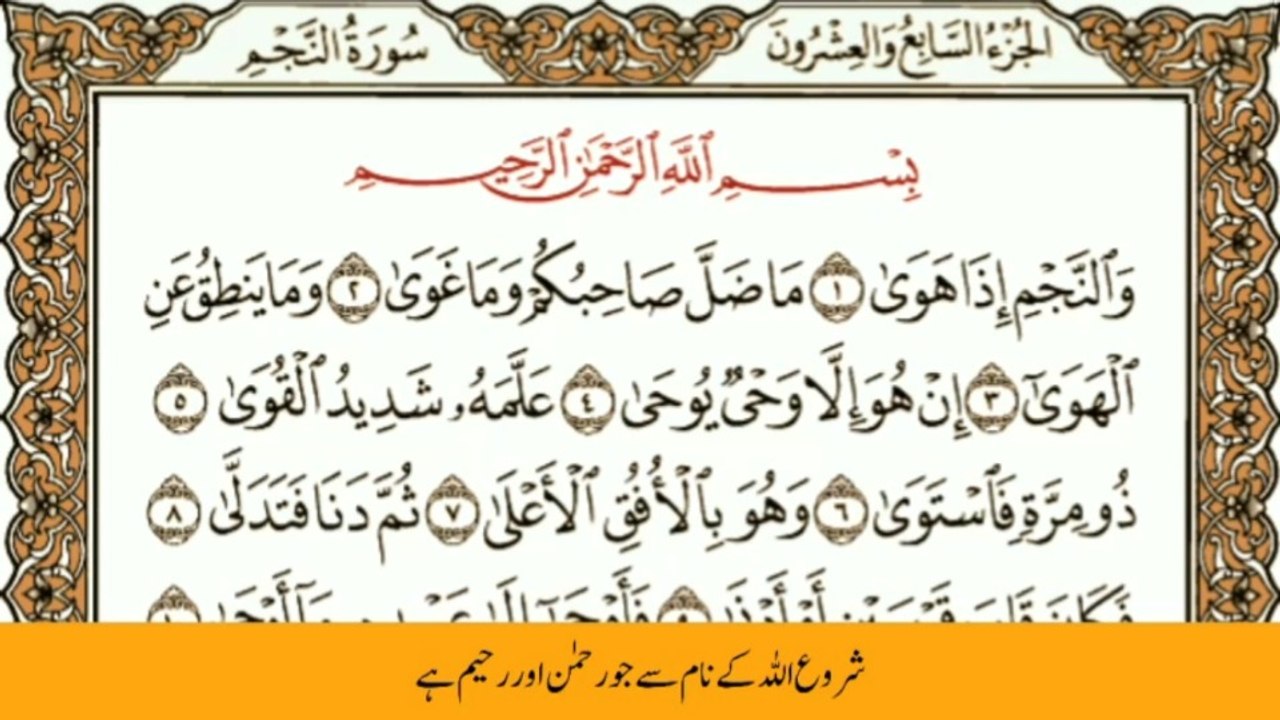 الجُزْءُ السَّابِعُ وَالعِشْرُونَ
سُورَةُ النَّجْمِ
بِسْمِ ٱللَّهِ ٱلرَّحْمَٰنِ ٱلرَّحِيمِ
وَٱلنَّجْمِ إِذَا هَوَىٰ ١ مَا ضَلَّ صَاحِبُكُمْ وَمَا غَوَىٰ ٢ وَمَا يَنطِقُ عَنِ
ٱلْهَوَىٰٓ ٣ إِنْ هُوَ إِلَّا وَحْىٌ يُوحَىٰ ٤ عَلَّمَهُۥ شَدِيدُ ٱلْقُوَىٰ ٥
ذُو مِرَّةٍ فَٱسْتَوَىٰ ٦ وَهُوَ بِٱلْأُفُقِ ٱلْأَعْلَىٰ ٧ ثُمَّ دَنَا فَتَدَلَّىٰ ٨
شروع اللہ کے نام سے جو رحمٰن اور رحیم ہے